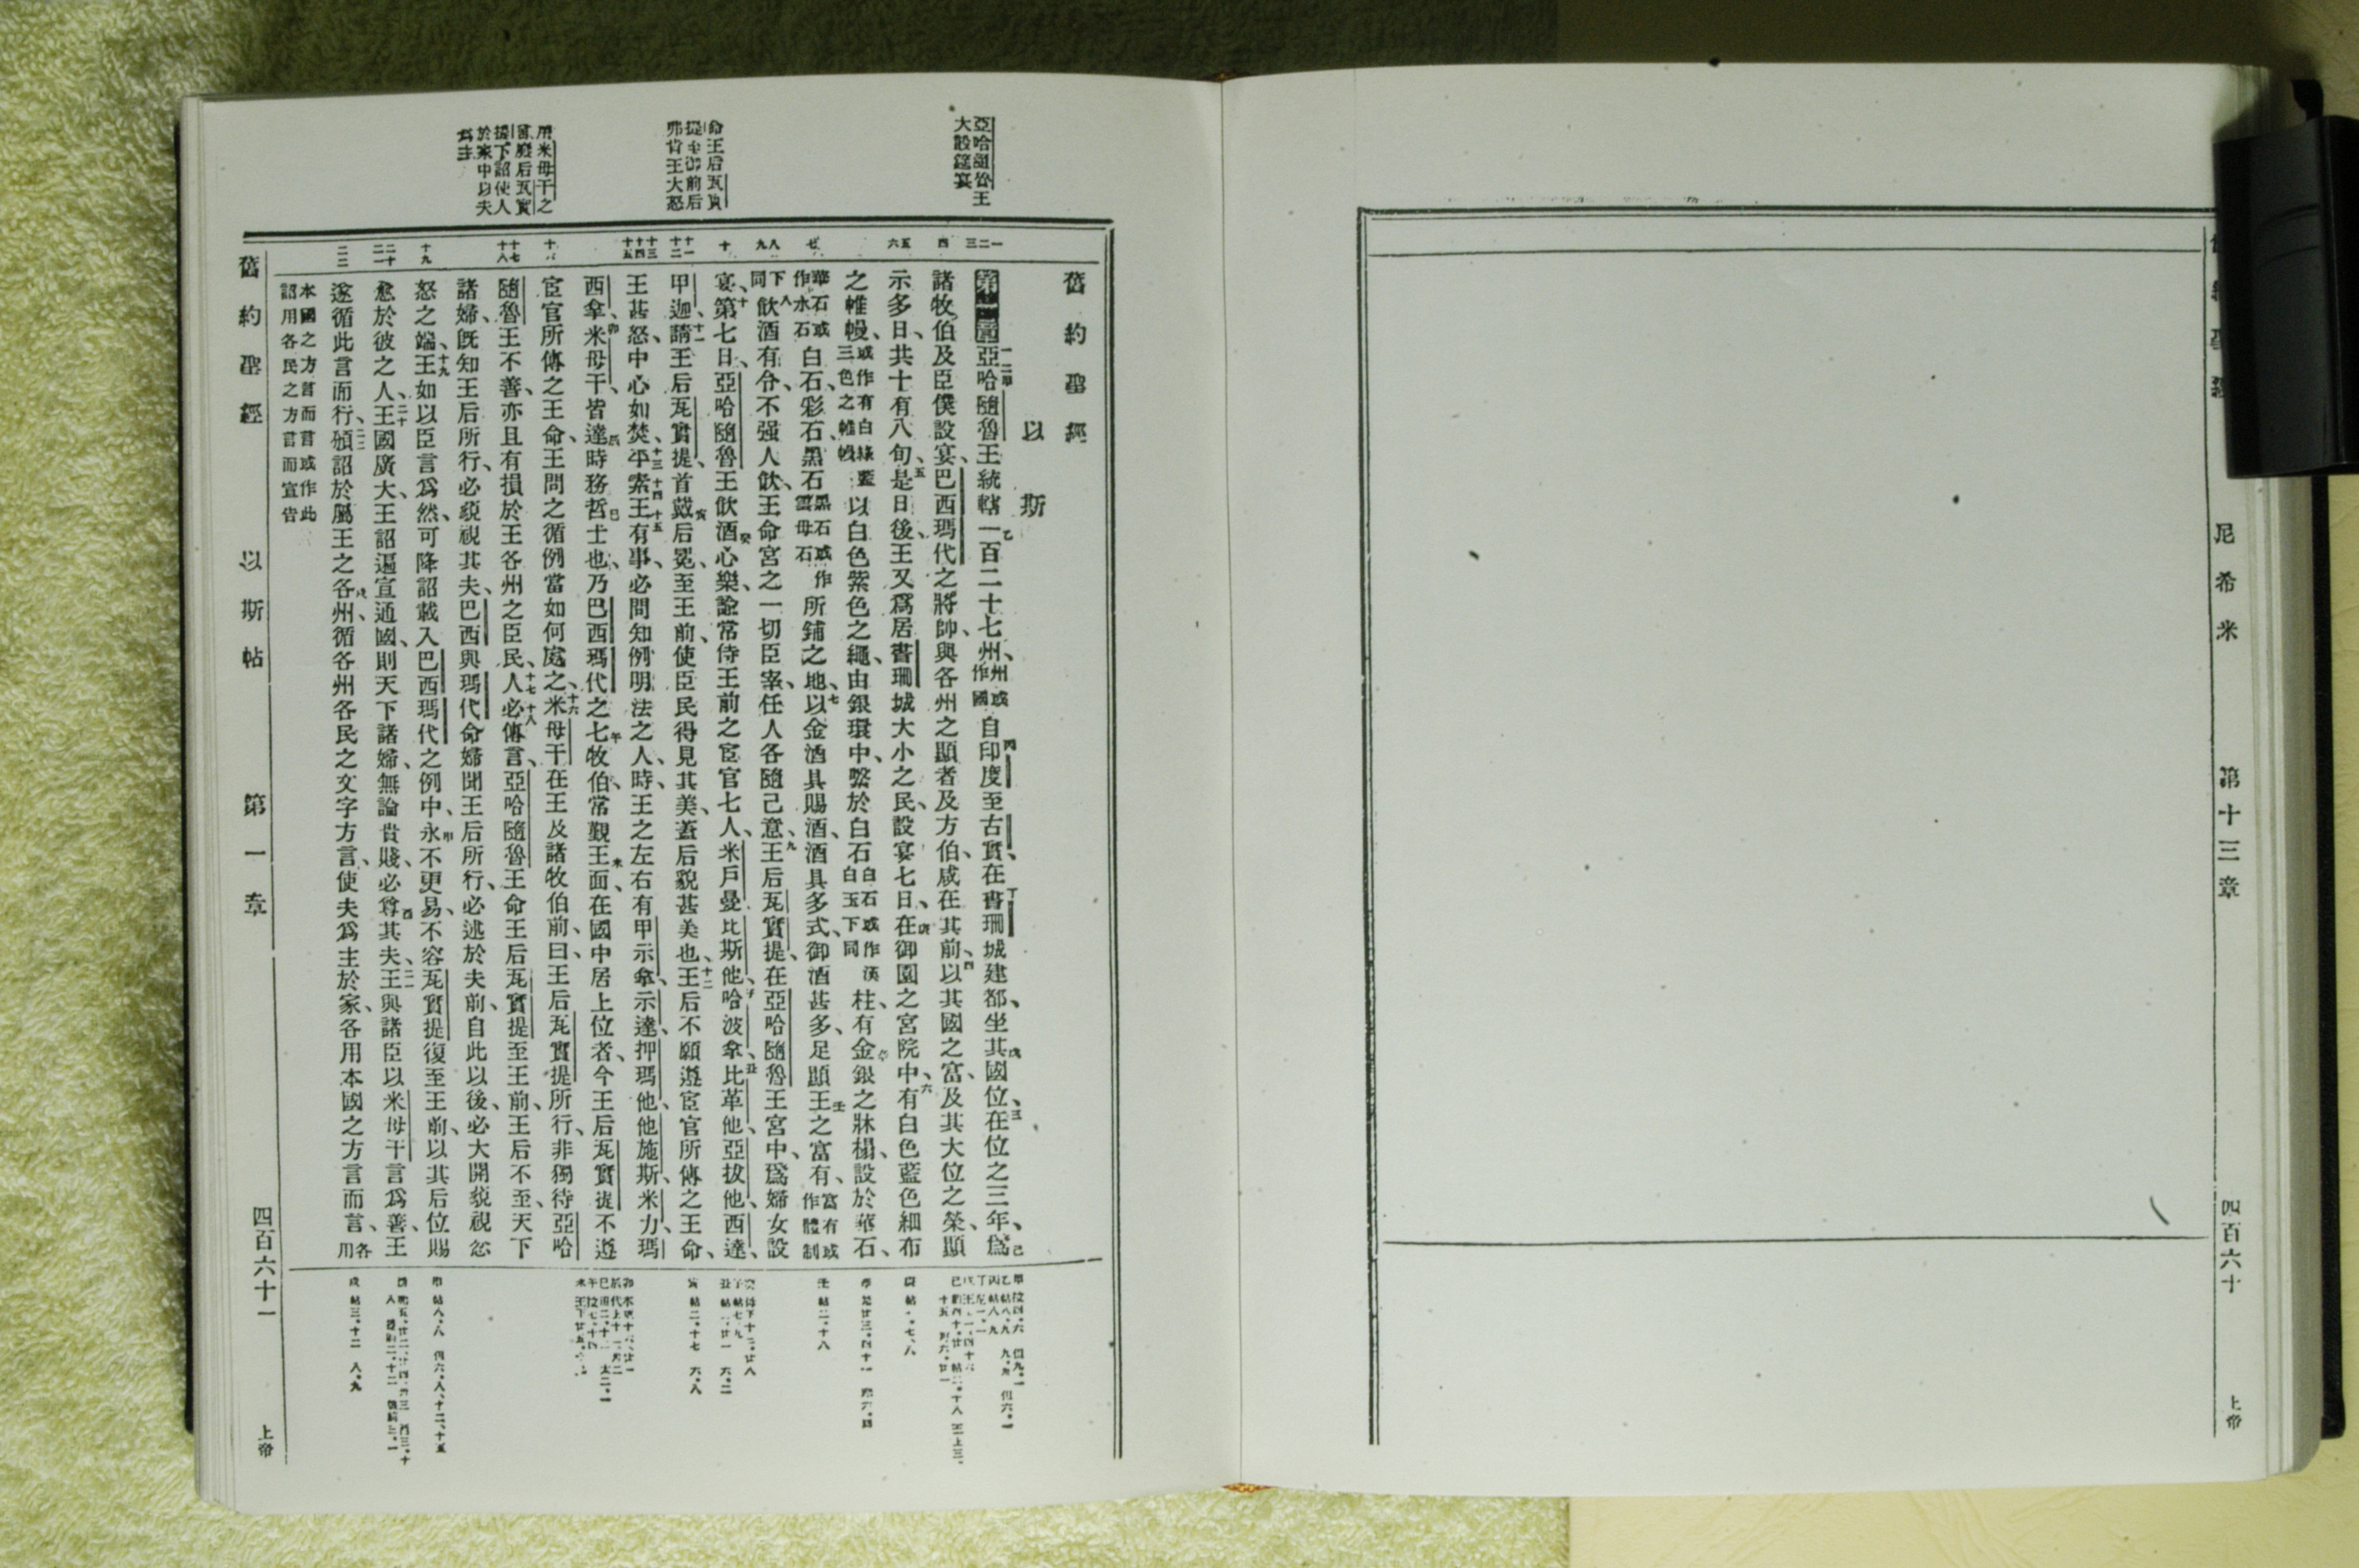 尼希米
第十三章
四百六十
上帝
舊約聖經
以斯
亞哈隨魯王
大設筵宴
命王后瓦實
提至御前后
弗肯王大怒
用米母干之
言廢后瓦實
提下詔使人
於家中以夫
為主
第一章亞哈隨魯王統轄一百二十七州、州或作國自印度至古實、在書珊城建都、坐其國位、在位之三年、為
諸牧伯及臣僕設宴、巴西瑪代之將帥、與各州之顯者及方伯、咸在其前、以其國之富、及其大位之榮、顯
示多日、共十有八旬、是日後、王又為居書珊城大小之民、設宴七日、在御園之宮院中、有白色藍色細布
之帷幔、或作有白綠藍三色之帷幔以白色紫色之繩、由銀環中、繫於白石白石或作漢白玉下同柱、有金銀之牀榻、設於華石、
華石或作水石白石、彩石、黑石黑石或作雲母石所鋪之地、以金酒具賜酒、酒具多式、御酒甚多、足顯王之富有、富有或作體制
下同飲酒有令、不强人飲、王命宮之一切臣宰、任人各隨己意、王后瓦實提、在亞哈隨魯王宮中、爲婦女設
宴、第七日、亞哈隨魯王飲酒心樂、諭常侍王前之宦官七人、米戶曼比斯他、哈波拿、比革他、亞拔他、西達、
甲迦、請王后瓦實提、首戴后冕、至王前、使臣民得見其美、蓋后貌甚美也、王后不願遵宦官所傳之王命、
王甚怒、中心如焚、平素王有事、必問知例明法之人、時、王之左右有甲示拿、示達、押瑪他、他施斯、米力、瑪
西拿、米母干、皆達時務哲士也、乃巴西瑪代之七牧伯、常觀王面、在國中居上位者、今王后瓦實提不遵
宦官所傳之王命、王問之循例當如何處之、米母干在王及諸牧伯前、曰、王后瓦實提所行、非獨待亞哈
隨魯王不善、亦且有損於王各州之臣民、人必傳言、亞哈隨魯王命王后瓦實提至王前、王后不至、天下
諸婦、旣知王后所行、必藐視其夫、巴西與瑪代命婦聞王后所行、必述於夫前、自此以後、必大開藐視忿
怒之端、王如以臣言爲然、可降詔載入巴西瑪代之例中、永不更易、不容瓦實提復至王前、以其后位賜
愈於彼之人、王國廣大、王詔遍宣通國、則天下諸婦、無論貴賤、必尊其夫、王與諸臣以米母干言爲善、王
遂循此言而行、頒詔於屬王之各州、循各州各民之文字方言、使夫爲主於家、各用本國之方言而言、各用
本國之方言而言或作此詔用各民之方言而宣告
舊約聖經
以斯帖
第一章
四百六十一
上帝